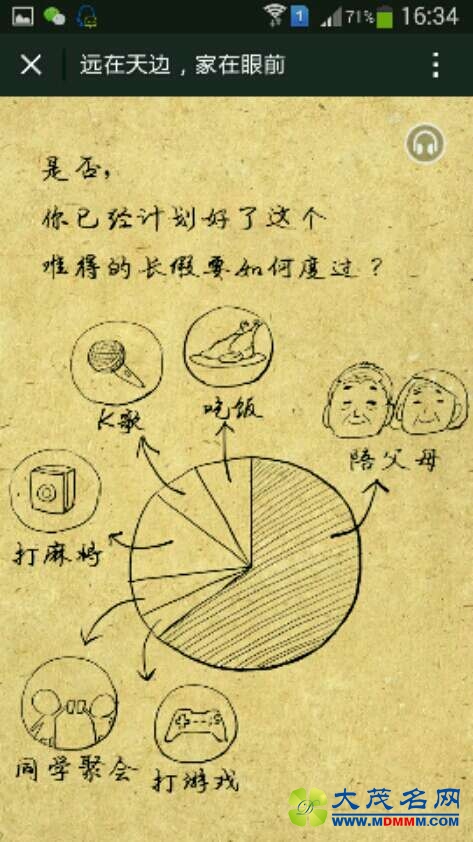 1
71%
16:34
远在天边，家在眼前
是否，
你已经计划好了这个
难得的长假要如何度过？
K歌
吃饭
陪父母
打麻将
同学聚会
打游戏
大茂名网
WWW.MDMMM.COM